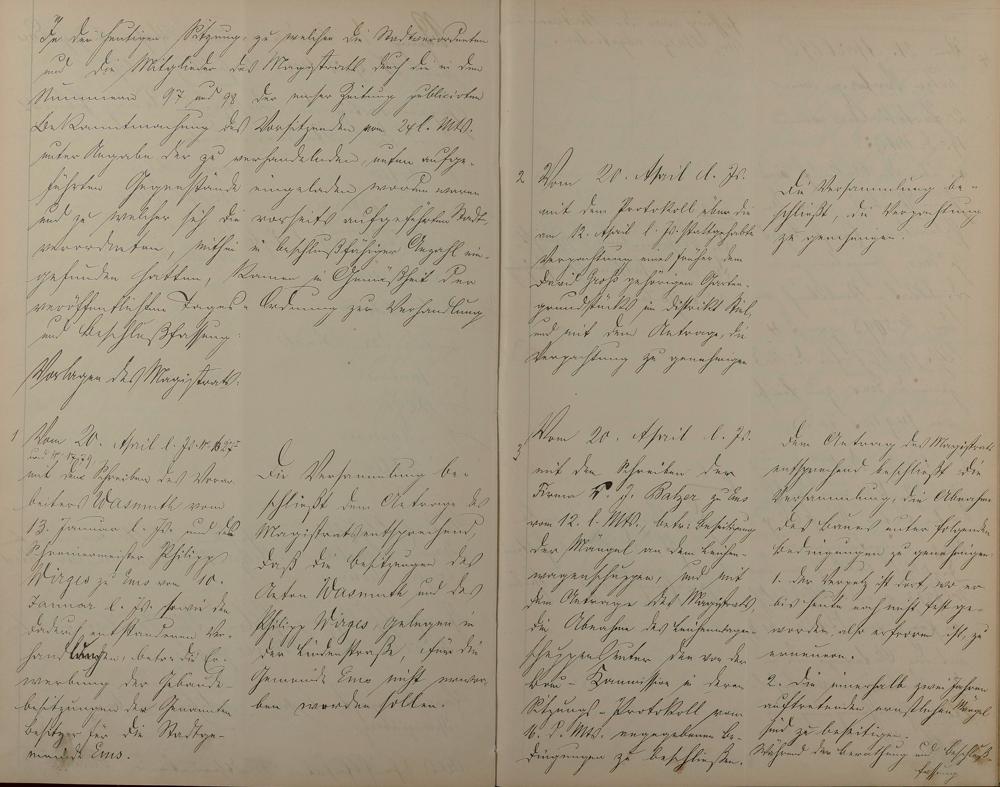 In der heutigen Sitzung, zu welcher die Stadtverordneten
und die Mitglieder des Magistrats durch die in den
Nummern 97 und 98 der Emser Zeitung publicirten
Bekanntmachung des Vorsitzenden vom 24 l. Mts.
unter Angabe der zu verhandelnden, unten aufge-
führten Gegenstände eingeladen worden waren
und zu welcher sich die vorseits aufgeführten Stadt-
verordneten mithin in beschlußfähiger Anzahl ein-
gefunden hatten, kamen in Gemäßheit der
veröffentlichten Tages-Ordnung zur Verhandlung
und Beschlußfassung:
Vorlagen des Magistrats.
1 Vom 20. April l. Js.
mit dem Schreiben des Vorar-
beiters Wasmuth vom
13. Januar l. Js. und des
Schreinermeister Philipp
Wirges zu Ems vom 10.
Januar l. Js. sowie den
dadurch entstandenen Ver-
handlungen, betr. die Er-
werbung der Gebäude-
besitzungen der genannten
Besitzer für die Stadtge-
meinde Ems.
Die Versammlung be-
schließt dem Antrage des
Magistrats entsprechend,
daß die Besitzungen des
Anton Wasmuth und des
Philipp Wirges, gelegen in
der Lindenstraße, für die
Gemeinde Ems nicht erwor-
ben werden sollen.
2 Vom 20. April l. Js.
mit dem Protokoll über die
am 12. April l. Js. stattgehabte
Verpachtung eines früher dem
David Groß gehörigen Garten-
grundstücks im Distrikt
und mit dem Antrage, die
Verpachtung zu genehmigen
Die Versammlung be-
schließt, die Verpachtung
zu genehmigen
3 Vom 20. April l. Js.
mit dem Schreiben der
Firma J. Balzer zu Ems
vom 12. l. Mts., betr: Beseitigung
der Mängel an dem Leichen-
wagenschuppen, und mit
dem Antrage des Magistrats,
die Abnahme des Leichenwagen-
schuppens unter den von der
Bau-Kommission in deren
Sitzungs-Protokoll vom
d. Mts. angegebenen Be-
dingungen zu beschließen.
Dem Antrag des Magistrats
entsprechend beschließt die
Versammlung, die Abnahme
des Baues unter folgenden
Bedingungen zu genehmigen
1. der Verputz ist dort, wo er
bis heute noch nicht fest ge-
worden, also erfroren ist, zu
erneuern.
2. Die innerhalb zwei Jahren
auftretenden ernstlichen Mängel
sind zu beseitigen.
Während der Berathung und Beschluß-
fassung